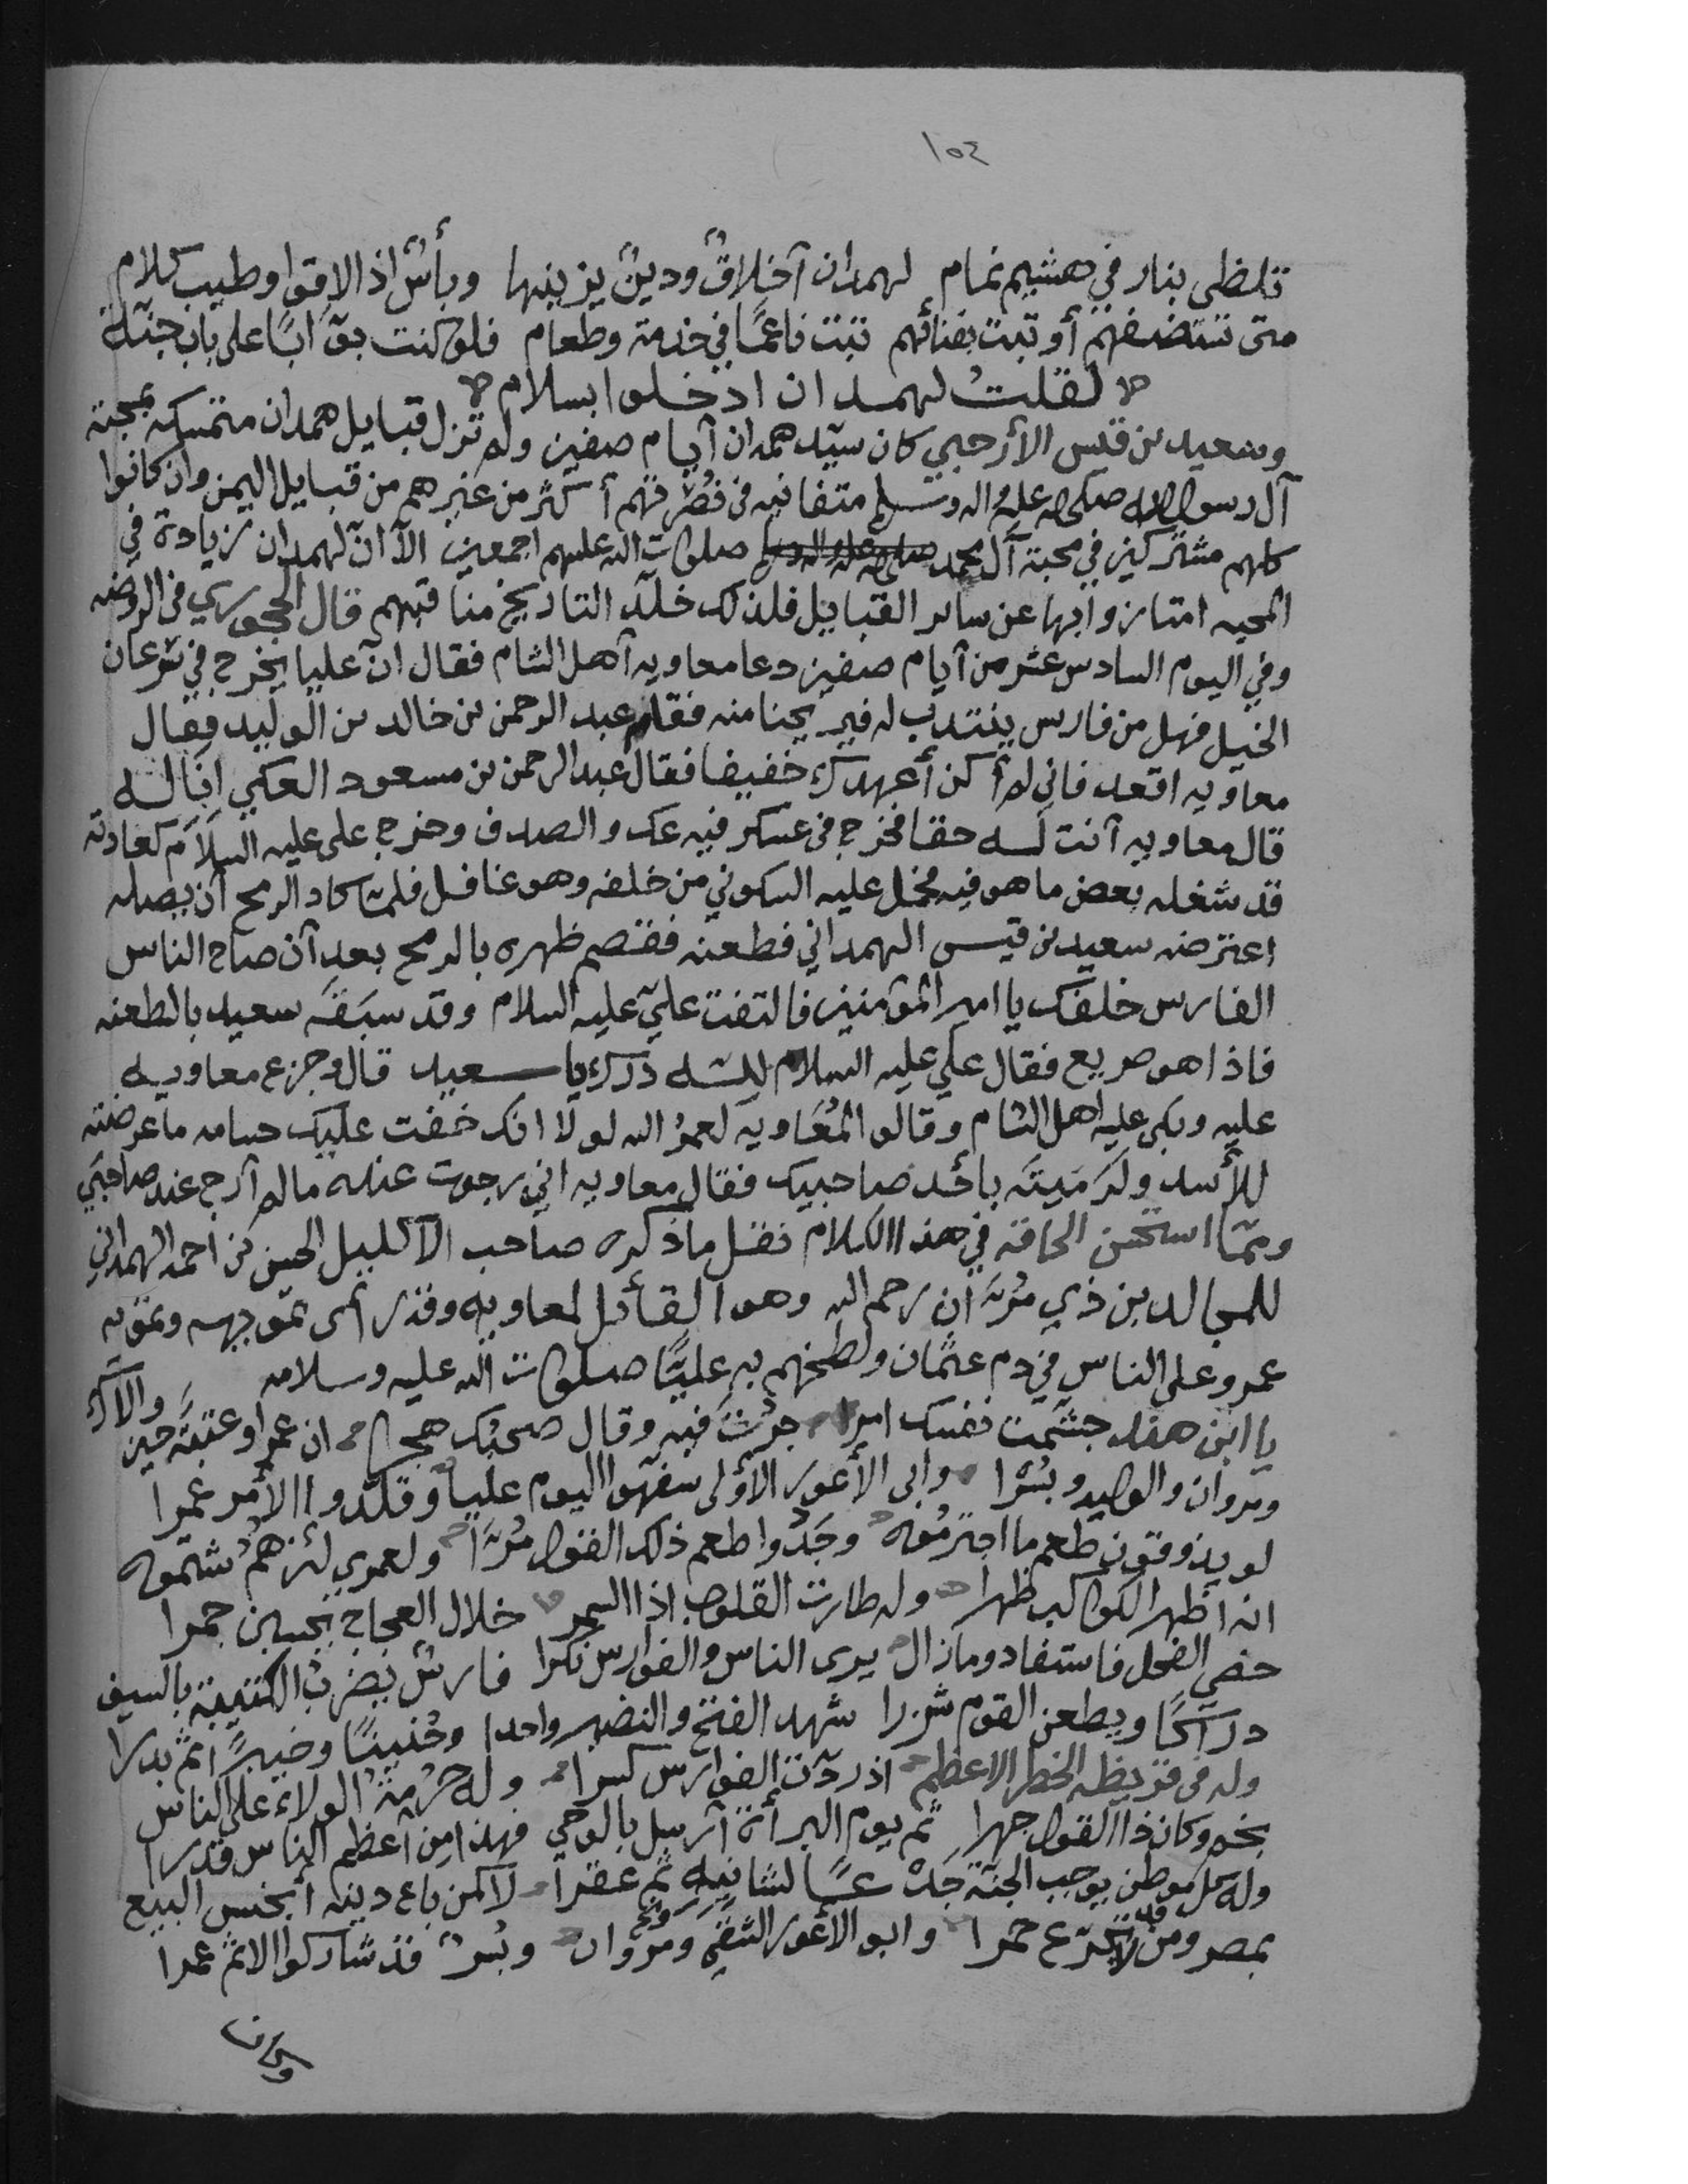 ١٥٤
تلظى بنار في هشيم ثمام لهمدان أخلاق ودين يزينها وبأس اذا لاقوا وطيب كلام
متى تستضفهم أو تبت بفنائهم تبت ناعمًا في خدمة وطعام فلو كنت بوّابًا على باب جنّة
لقلت لهمدان ادخلوا بسلام
وسعيد بن قيس الأرحبي كان سيّد همدان أيام صفين ولم تزل قبايل همدان متمسكه بمحبة
آل رسول الله صلى الله عليه واله وسلم متفانيه في نصرتهم أكثر من غيرهم من قبايل اليمن وان كانوا
كلهم مشتركين في محبة آل محمد صلوات الله عليهم اجمعين الّا انّ لهمدان زيادة في
المحبه امتازوا بها عن ساير القبايل فلذلك خلّد التاريخ مناقبهم قال الحجوري في الروضه
وفي اليوم السادس عشر من أيام صفين دعا معاويه أهل الشام فقال انّ عليا يخرج في سرعان
الخيل فهل من فارس ينتدب له فيريحنا منه فقام عبد الرحمن بن خالد بن الوليد فقال
معاويه اقعد فاني لم أكن أعهدك خفيفا فقال عبد الرحمن بن مسعود العكي انا له
قال معاويه أنت له حقا فخرج في عسكر فيه عك والصدف وخرج علي عليه السلام كعادته
قد شغله بعض ما هو فيه فحمل عليه السكوني من خلفه وهو غافل فلمّا كاد الرمح أن يصله
اعترضه سعيد بن قيس الهمداني فطعنه فقصم ظهره بالرمح بعد أن صاح الناس
الفارس خلفك يا امير المؤمنين فالتفت عليّ عليه السلام وقد سبقه سعيد بالطعنه
فاذا هو صريع فقال علي عليه السلام لله درك يا سعيد قال وجزع معاويه
عليه وبكى عليه اهل الشام وقالوا لمعاويه لعمر الله لولا انك خفت عليك حسامه ما عرضته
للأسد ولرميته بأحد صاحبيك فقال معاويه اني رجوت عنده ما لم أرج عند صاحبي
وممّا استحسن الحاقه في هذا الكلام نقل ما ذكره صاحب الاكليل الحسن بن احمد الهمداني
للمجالد بن ذي مرّان رحمه الله وهو القائل لمعاويه وقد راى تموجهه وتمويه
عمرو على الناس في دم عثمان ولطخهم به عليًّا صلوات الله عليه وسلامه
يا ابن هند جشّمت نفسك امرا جرت فيه وقال صحبك هجرا ان عمرا وعتبة حين والاك
ومروان والوليد وبسرا وابي الأعور الأولى سفهوا اليوم عليا وقلّدوا الأمر عمرا
لو يذوقون طعم ما اجترموه وجدوا طعم ذلك القول مرّا ولعمري لئن هم شتموه
انه اظهر الكواكب ظهرا وله طارت القلوب اذا السمر خلال العجاج يحسبن جمرا
الفحل فاستفاد وما زال يرى الناس والفوارس نكرا فارس يضرب الكتيبة بالسيف
دراكًا ويطعن القوم شزرا شهد الفتح والنضير واحدا وحنينًا وخيبرًا ثم بدرا
وله في قريظه الخطر الاعظم اذ ردّت الفوارس كسرا وله حرمة الولاء على الناس
بخم وكان ذا القول جهرا ثم يوم البرأة أرسل بالوحي فهذا من أعظم الناس قدرا
وله كل موطن يوجب الجنة لشانيه ثم عقرا لا كمن باع دينه أبخس البيع
بمصر ومن يجرّع خمرا وابو الأعور الشقي ومروان وبسر قد شاركوا الاثم عمرا